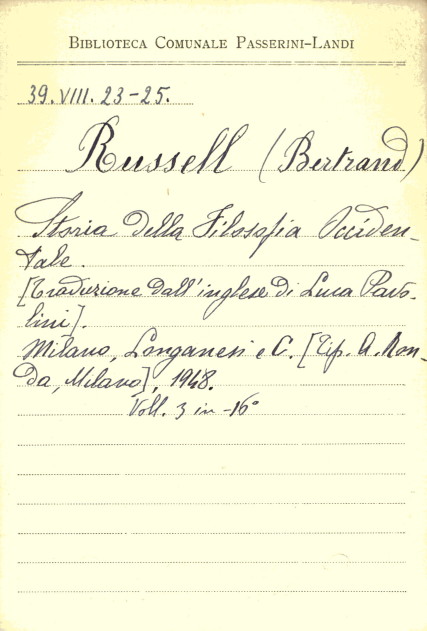 BIBLIOTECA COMUNALE PASSERINI-LANDI
39. VIII. 23-25.
Russell (Bertrand)
Storia della Filosofia Occiden-
tale.
[Traduzione dall'inglese di Luca Pavo-
lini].
Milano, Longanesi e C. [Tip. A. Ron-
da, Milano], 1948.
Voll. 3 in -16°